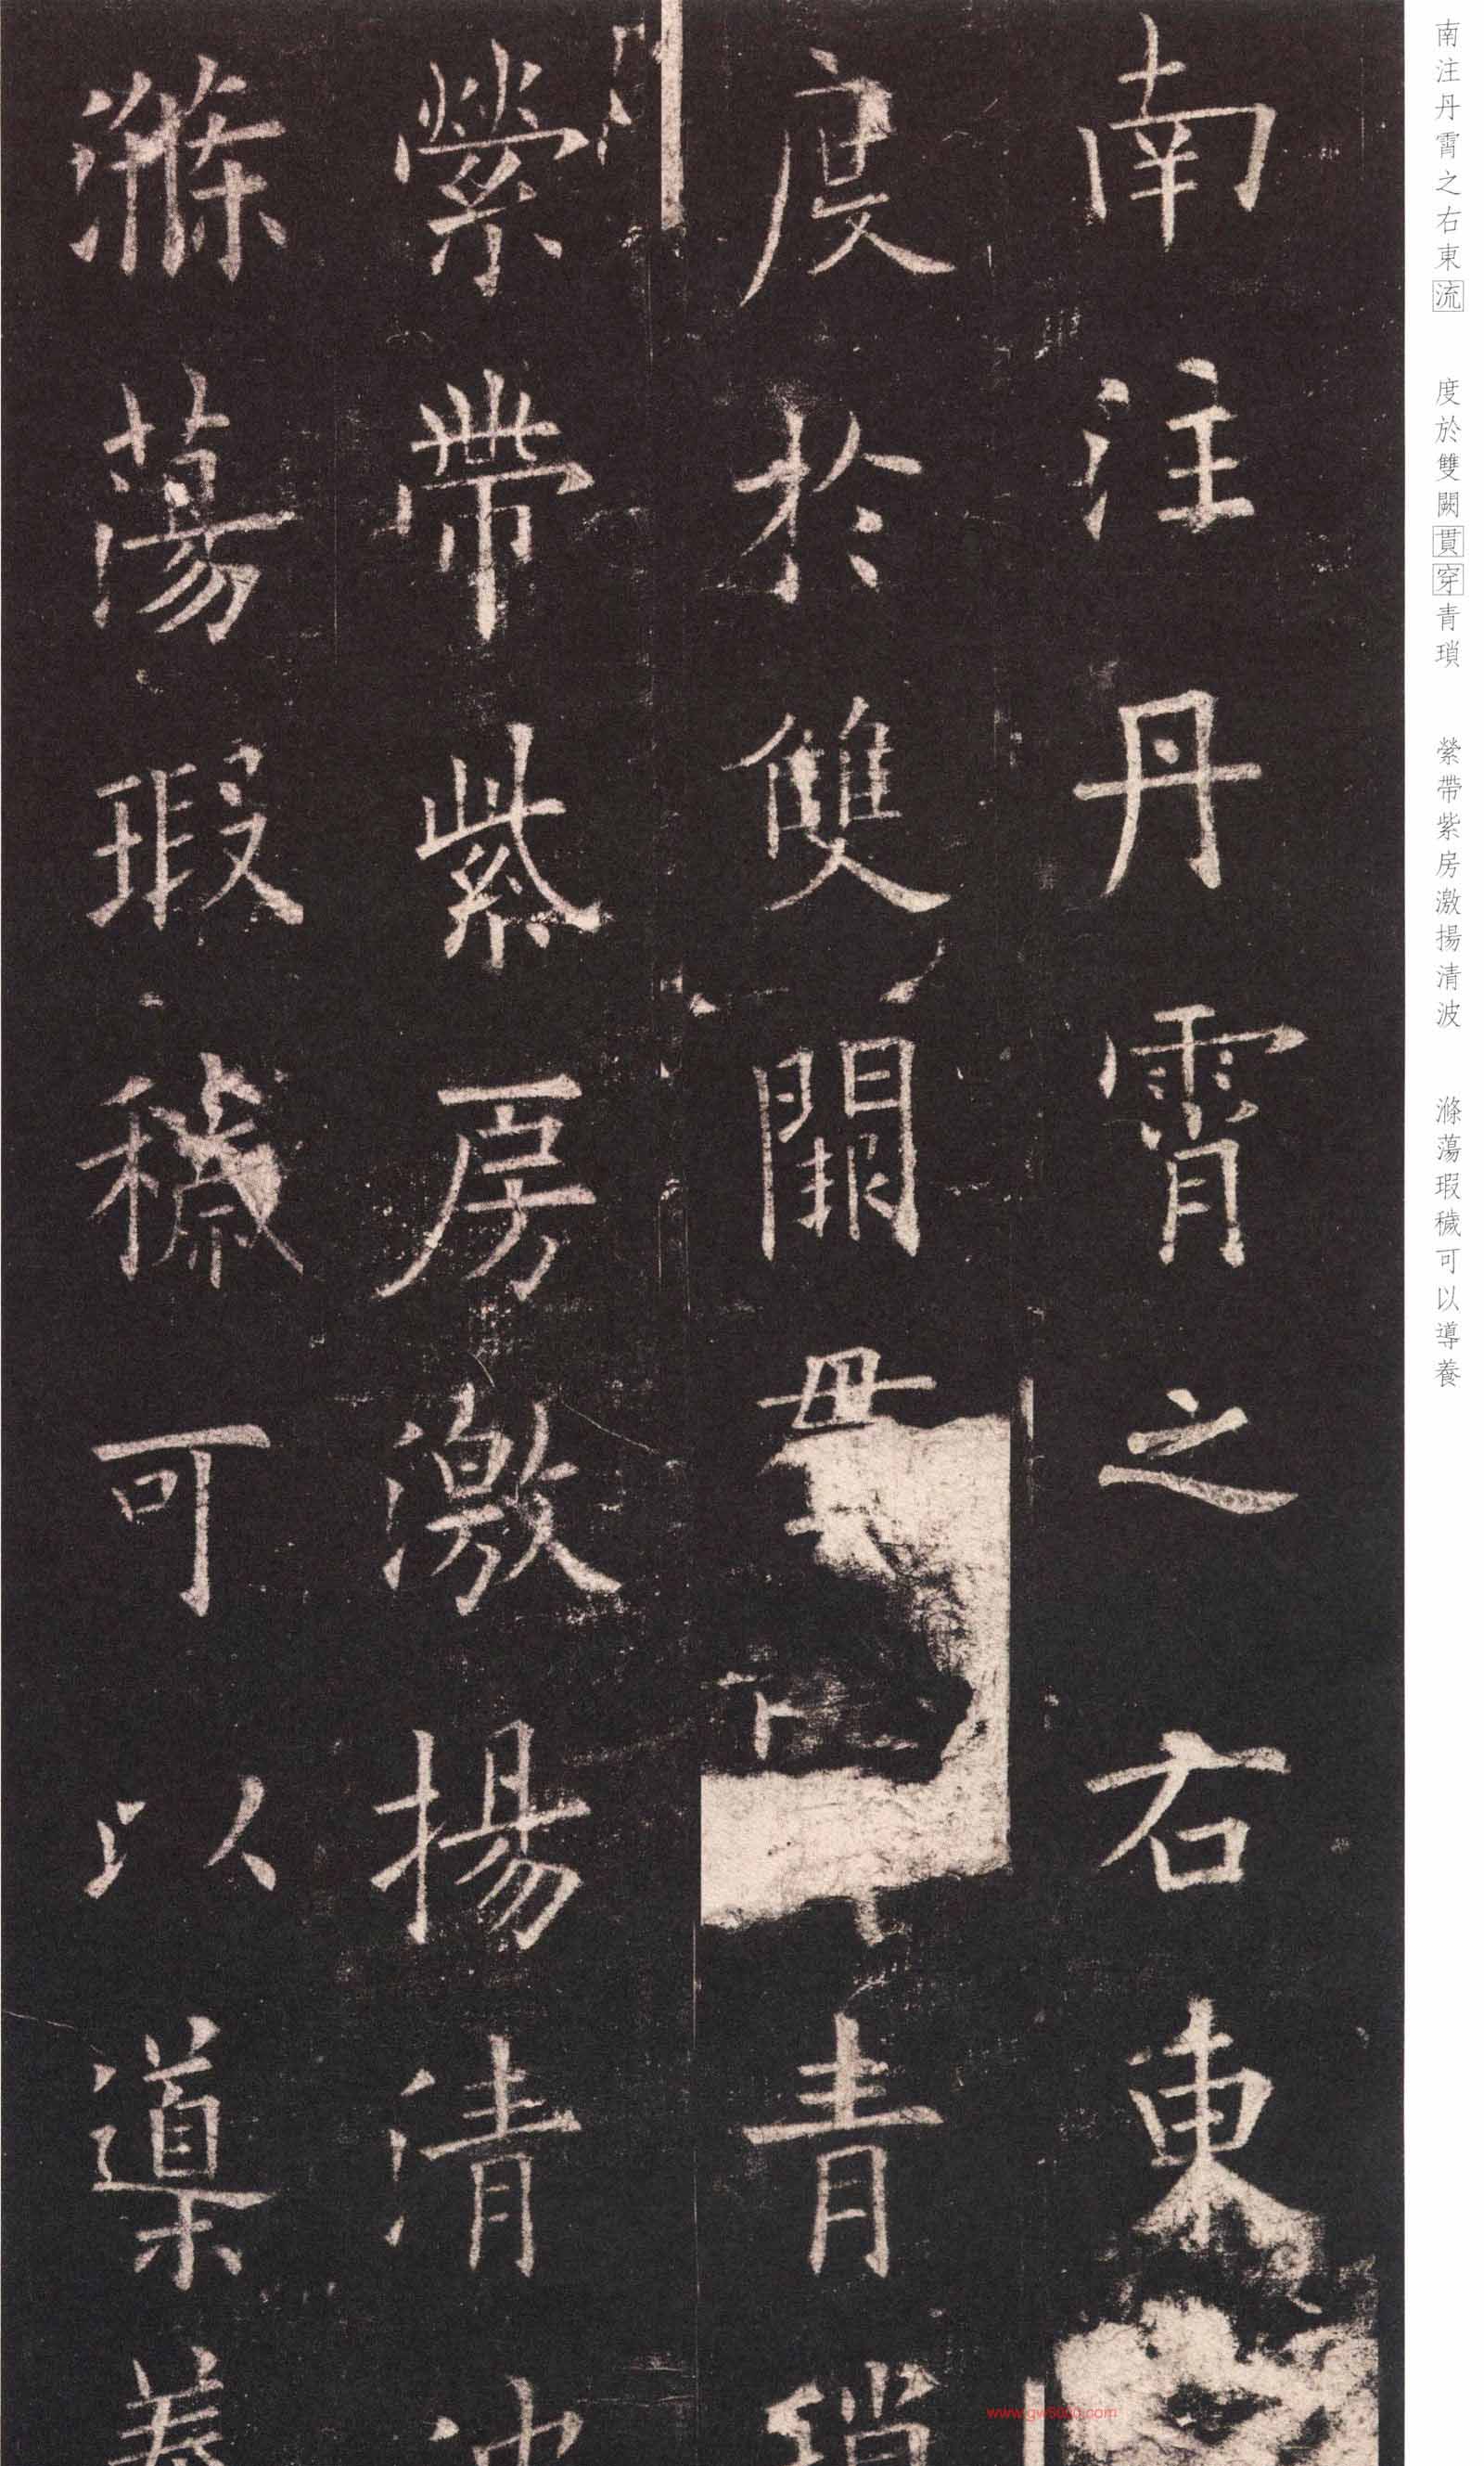 南注丹霄之右東
度於雙闕貫青瑣
縈帶紫房激揚清波
滌蕩瑕穢可以導養
南注丹霄之右東流
度於雙闕貫穿青瑣
縈帶紫房激揚清波
滌蕩瑕穢可以導養